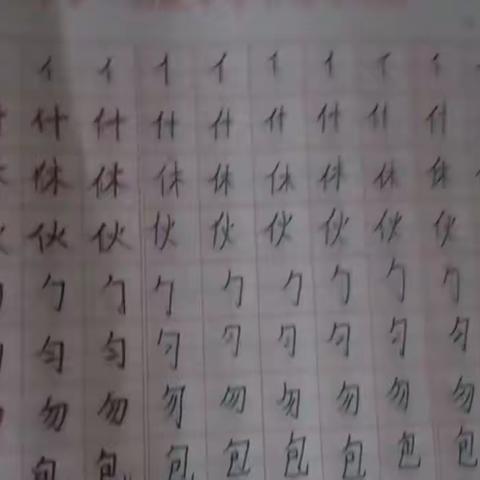 亻亻亻亻亻亻亻亻
什什什什什什什什
休休休休休休休休
伙伙伙伙伙伙伙伙
勹勹勹勹勹勹勹勹
匀匀匀匀匀匀匀匀
勿勿勿勿勿勿勿勿
包包包包包包包包